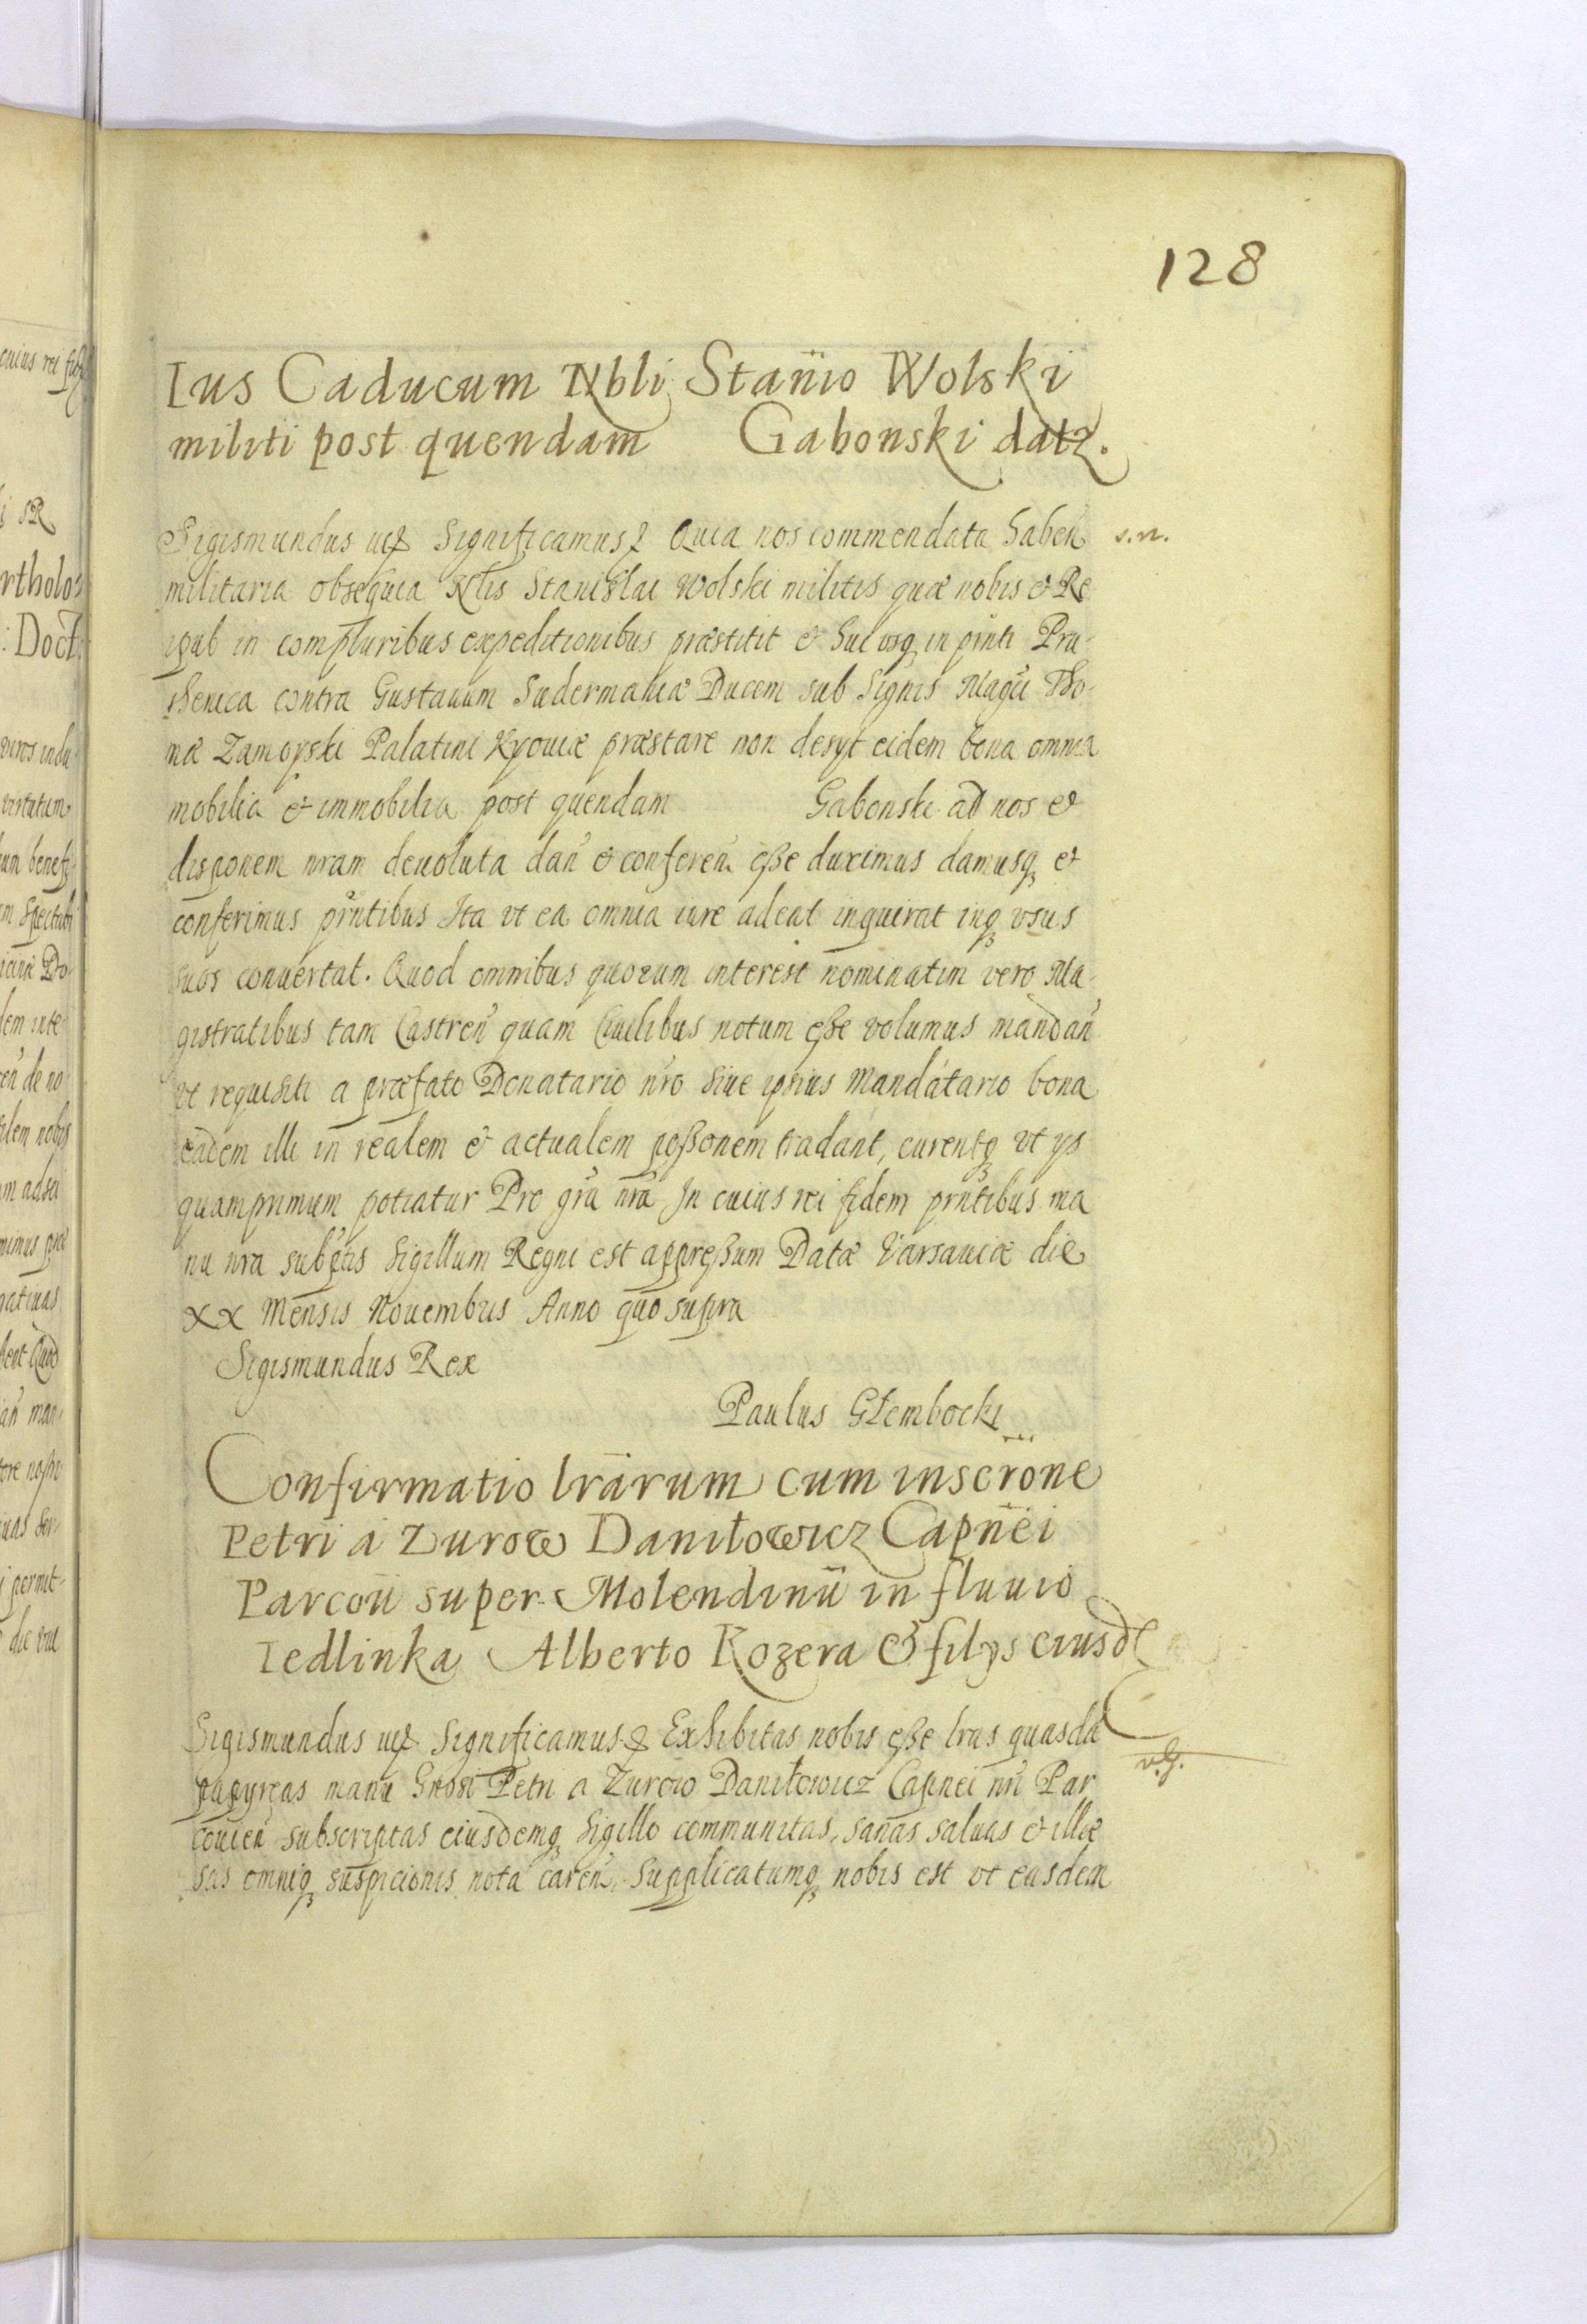 128
Ius Caducum Nbli Stanio Wolski
militi post quendam Gabonski datz.
Sigismundus uc Significamus Quia nos commendata haben s.n.
militaria obsequia Nlis Stanislai Wolski militis quæ nobis & Re
ipub in compluribus expeditionibus præstitit & huc usq in pñti Pru-
thenica contra Gustauum Sudermaniæ Ducem sub Signis Magci Tho-
mæ Zamoyski Palatini Kyouiæ præstare non desyt eidem bona omnia
mobilia & immobilia post quendam Gabonski ad nos &
disponem nram deuoluta dañ & conferen eße duximus damusq et
conferimus pñtibus Ita vt ea omnia iure adeat inquirat inq vsus
suos conuertat. Quod omnibus quorum interest nominatim vero Ma-
gistratibus tam Castreñ quam Ciuilibus notum eße volumus mandañ
vt requisiti a præfato Donatario nro siue ipsius Mandatario bona
eadem illi in realem & actualem poßonem tradant, curentq vt ys
quamprimum potiatur Pro gra nra In cuius rei fidem pñtibus ma
nu nra subsctis Sigillum Regni est appreßum Datæ Varsauiæ die
XX Mensis Nouembris Anno quo supra
Sigismundus Rex
Paulus Głembocki
Confirmatio lrarum cum inscrone
Petri a Zurow Daniłowicz Capnei
Parcou super Molendinū in fluuio
Iedlinka Alberto Kozera & filys eiusd
Sigismundus uc Significamus Exhibitas nobis eße lras quasdā
papyreas manu Gnosi Petri a Zurow Daniłowicz Capnei nri Par v.g.
couien subscriptas eiusdemq Sigillo communitas, sanas saluas & illæ
sas omniq suspicionis nota careñ, Supplicatumq nobis est vt easdem